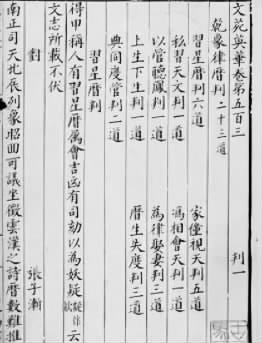 文苑英華卷第五百三
判一
乾象律曆判二十三道
習星曆判六道　家僮視天判五道
私習天文判一道　馮相會天判一道
以管聽鳳判一道　為律娶妻判三道
上生下生判一道　曆生失度判三道
典同度管判二道
習星曆判
得甲稱人有習星曆屬會吉凶有司劾以為妖疑疑作欵云
文志所載不伏
對　張子漸
南正司天北辰列象昭回可議坐徵雲漢之詩曆數難推